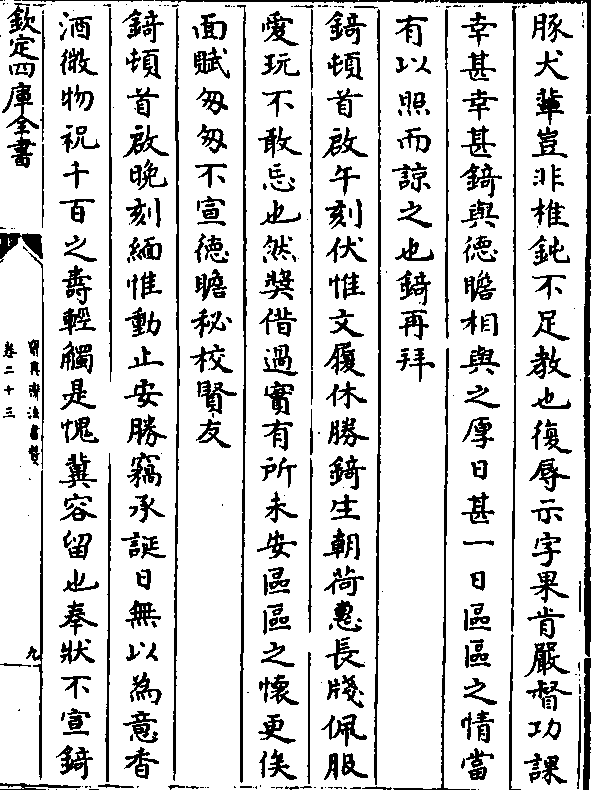 豚犬輩豈非椎鈍不足教也復辱示字果肯嚴督功課
幸甚幸甚錡與德瞻相與之厚日甚一日區區之情當
有以照而諒之也錡再拜
錡頓首啟午刻伏惟文履休勝錡生朝荷惠長牋佩服
愛玩不敢忘也然奬借過實有所未安區區之懷更俟
面賦匆匆不宣德瞻秘校賢友
錡頓首啟晚刻緬惟動止安勝竊承誕日無以為意香
酒微物祝千百之壽輕觸是愧冀容留也奉狀不宣錡
欽定四庫全書
寶真齋法書贊
卷二十三
九